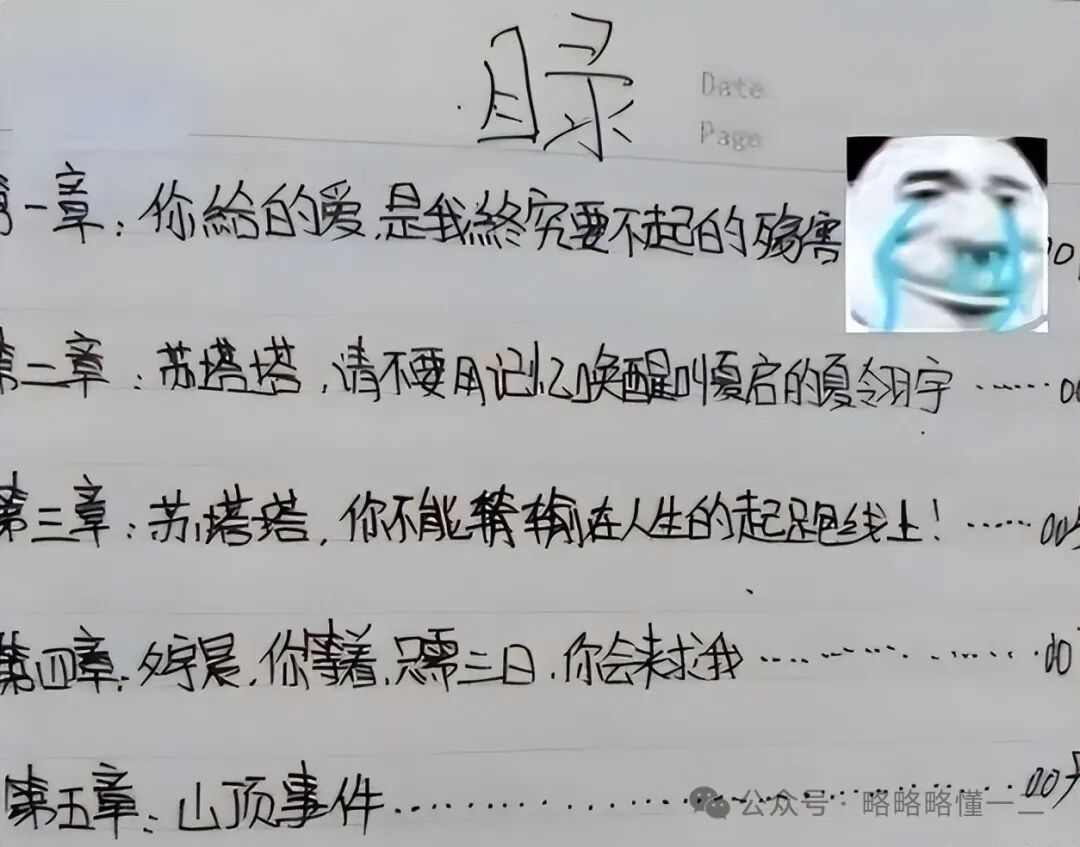 目录
Date
Page
第一章：你給的爱，是我終究要不起的殇害
第二章：苏塔塔，请不要用记忆唤醒叫夏启的夏翎宇……00
第三章：苏塔塔，你不能输在人生的起跑线上！……005
第四章：夕宇晨，你等着，只需三日，你会来求我……00
第五章：山顶事件……007
公众号·略略略懂一二